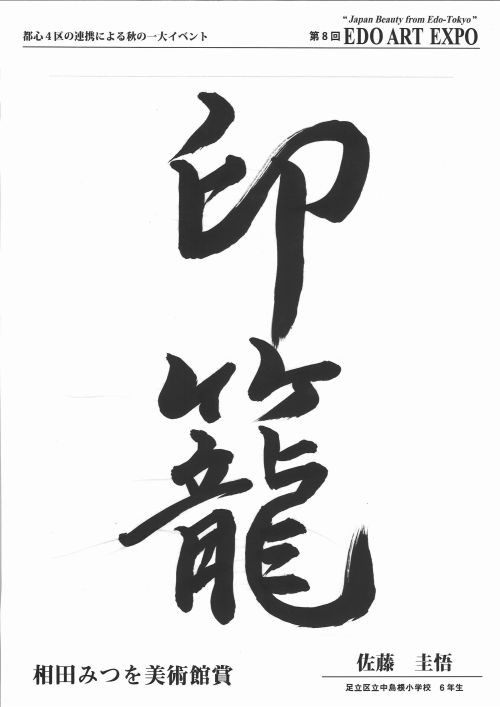 "Japan Beauty from Edo-Tokyo"
都心4区の連携による秋の一大イベント
第8回 EDO ART EXPO
印籠
相田みつを美術館賞
佐藤 圭悟
足立区立中島根小学校 6年生